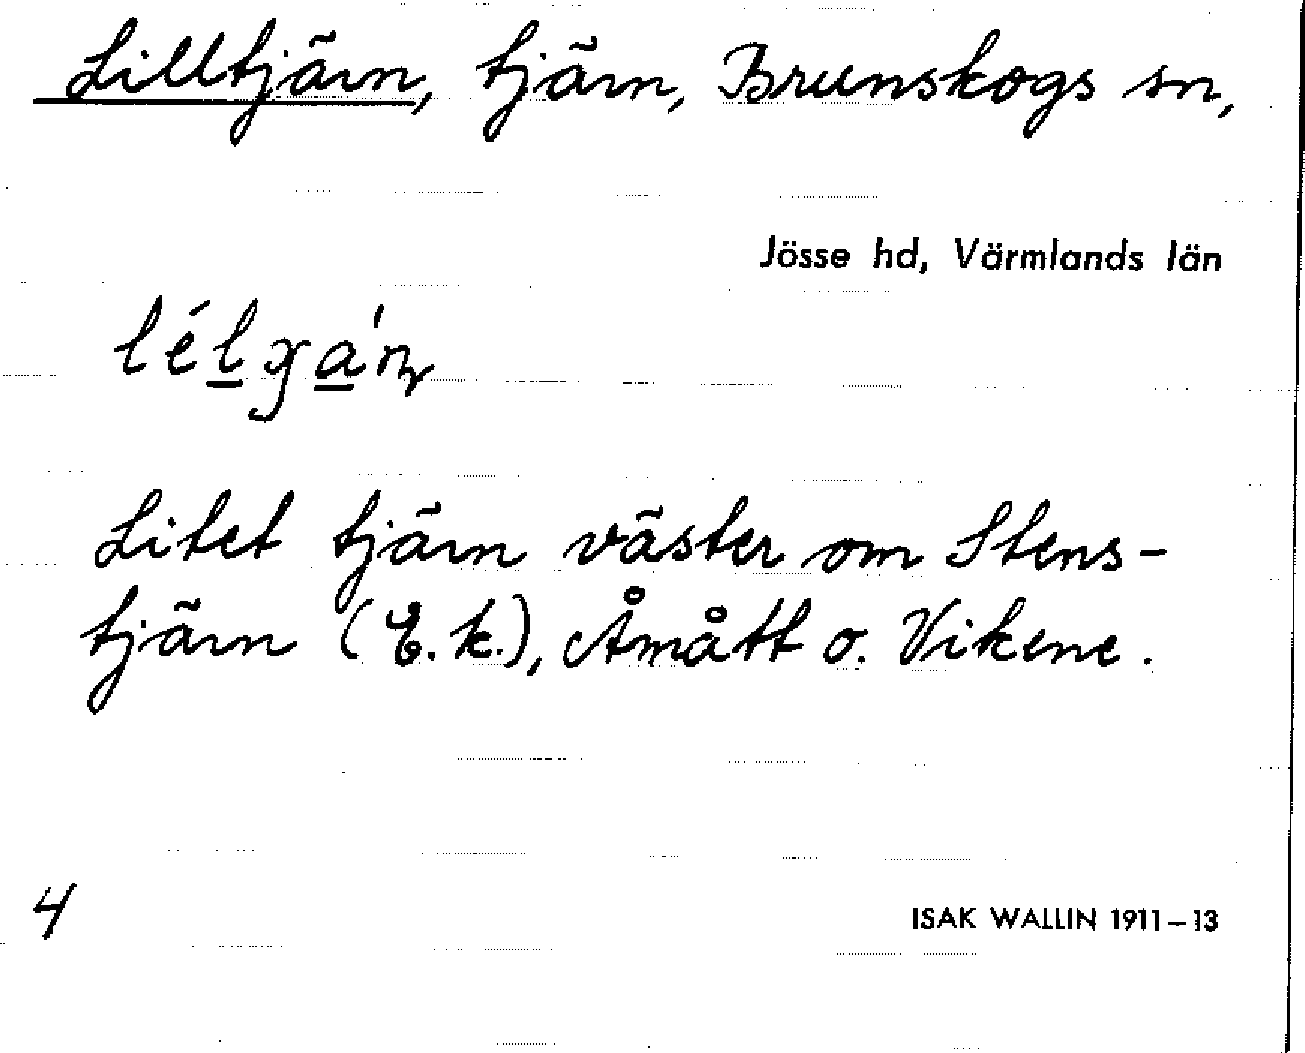 Lilltjärn, tjärn, Brunskogs sn,
Jösse hd, Värmlands län
Litet tjärn väster om Stens-
tjärn (E.k.), Åmått o. Vikene.
4
ISAK WALLIN 1911–13